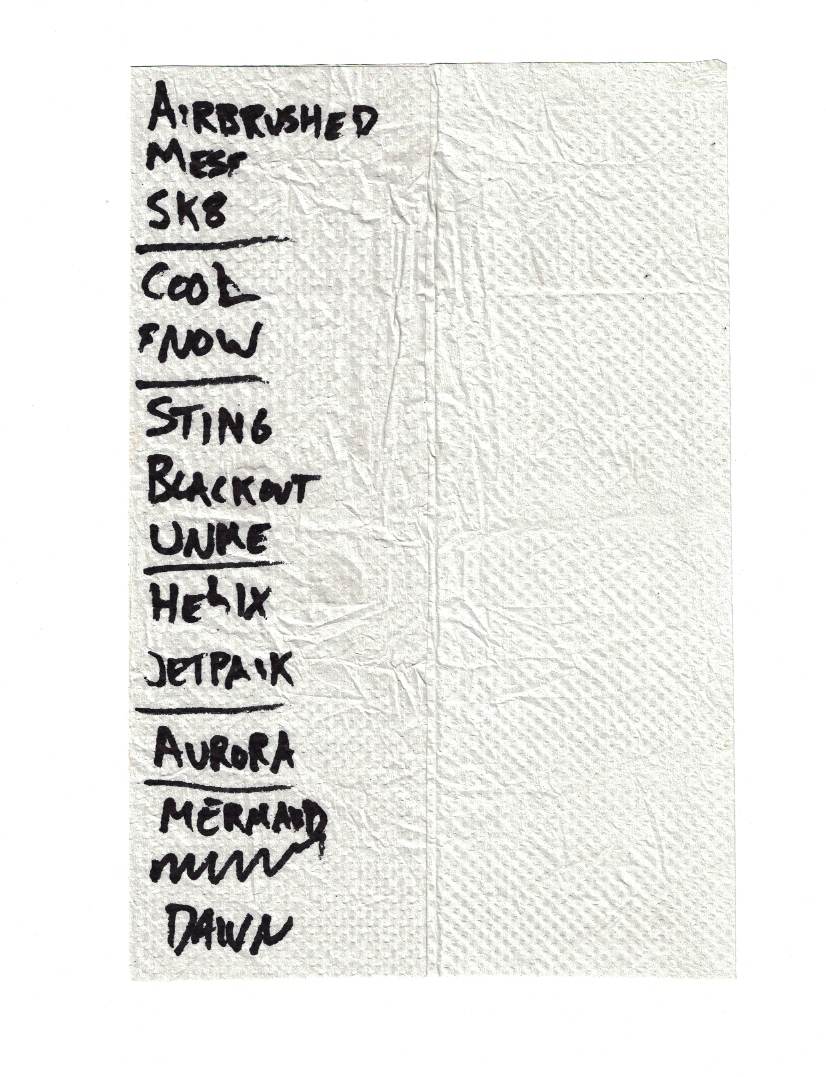 AIRBRUSHED
MESS
SK8
COOL
SNOW
STING
BLACKOUT
UNME
HELIX
JETPACK
AURORA
MERMAID
DAWN